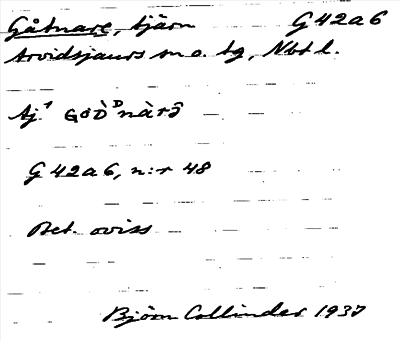 Gåtnare, tjärn G 42 a 6
Arvidsjaurs sn o. tg, Nbtl.
G 42 a 6, n:r 48
Bet. oviss
Björn Collinder 1937